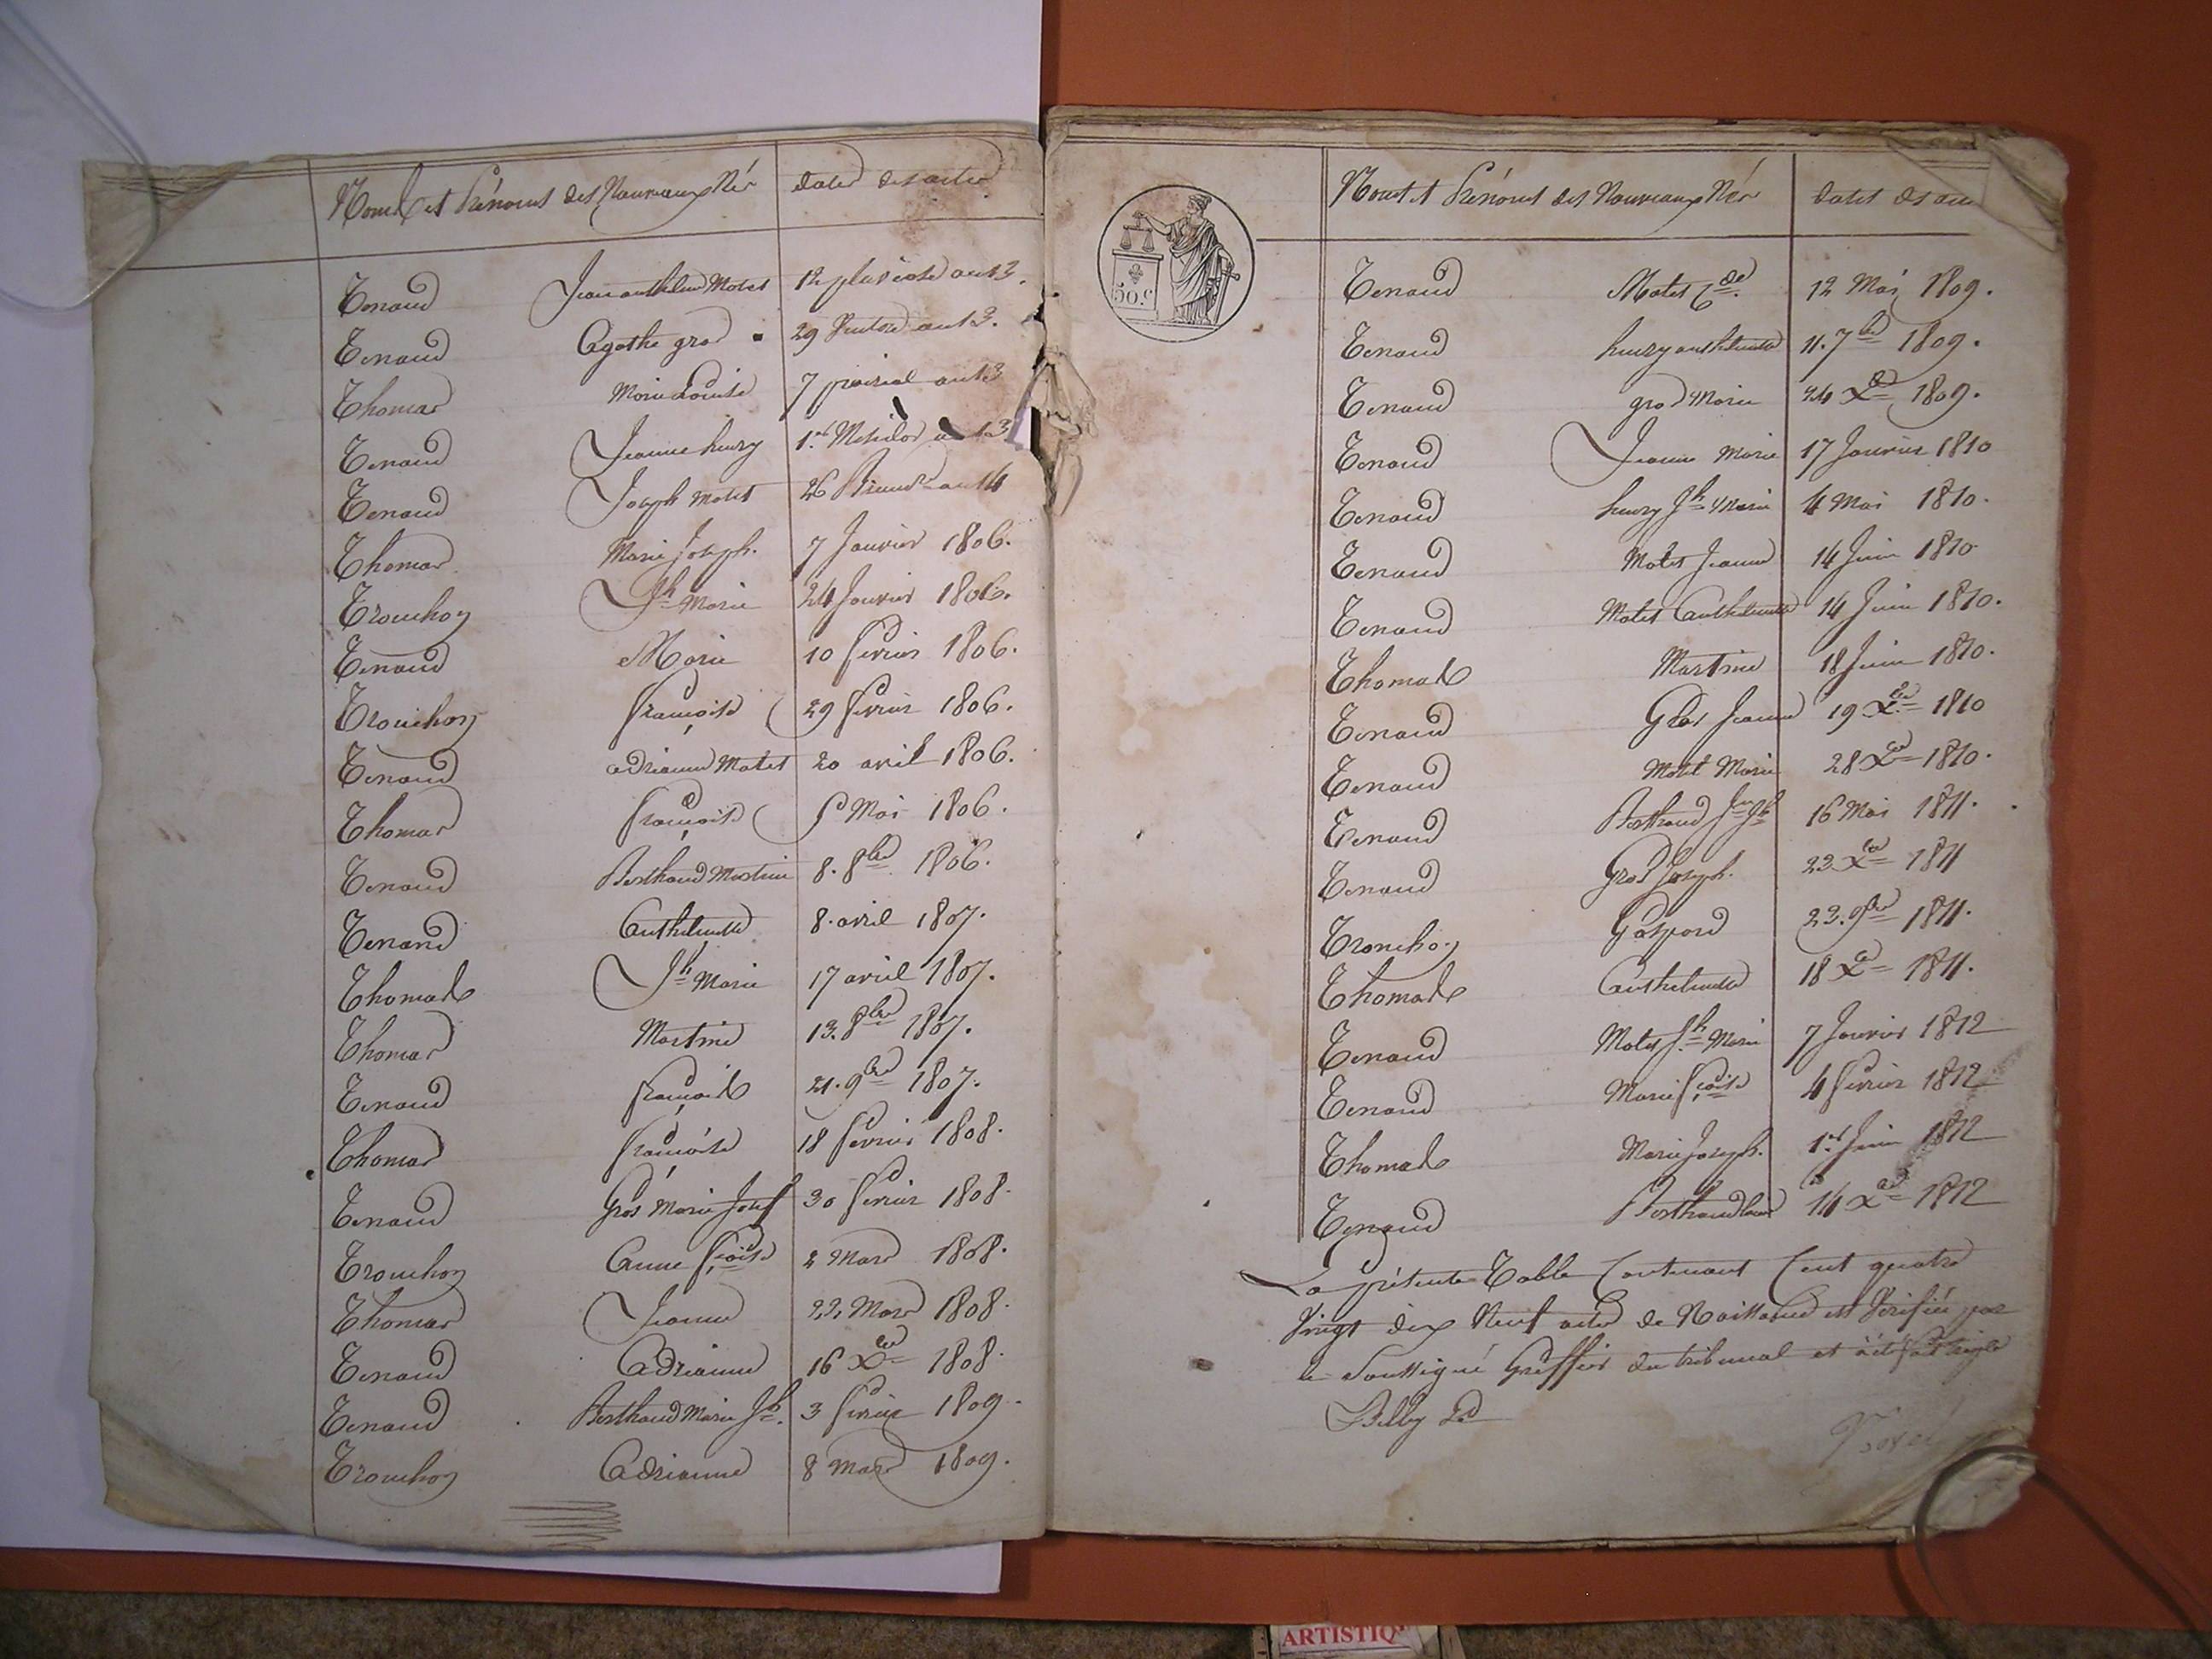 Noms et Prénoms des Nouveaux Nés dates des actes
Tenaud Jean anthelme Motet 12 pluviose an 13.
Tenaud Agathe gros 29 Ventose an 13.
Thomas Marie Louise 7 prairial an 13
Tenaud Jeanne henry 1.er Messidor an 13
Tenaud Joseph Motet 26 Brumre an 14
Thomas Marie Joseph. 7 Janvier 1806.
Tronchon Jh Marie 24 Janvier 1806.
Tenaud Marie 10 fevrier 1806.
Tronchon françoise 29 fevrier 1806.
Tenaud adrianne Motet 20 avril 1806.
Thomas françoise Mai 1806.
Tenaud Berthaud Martine 8. 8bre 1806.
Tenand Anthelmette 8. avril 1807.
Thomas Jh Marie 17 avril 1807.
Thomas Martine 13. 8bre 1807.
Tenaud françois 21. 9bre 1807.
Thomas françoise 18 fevrier 1808.
Tenaud Gros Marie Josef 30 fevrier 1808.
Tronchon Anne fçoise 2 Mars 1808.
Thomas Jeanne 22 Mars 1808.
Tenaud Adrianne 16 Xbre 1808.
Tenaud Berthaud Marie Jh. 3 fevrier 1809.
Tronchon Adrianne 8 Mars 1809.
50.c
Noms et Prénoms des Nouveaux Nés dates des
Tenaud Motet Cde. 12 Mai 1809.
Tenaud henry anthelmette 11. 7bre 1809.
Tenaud gros Marie 24 Xbre 1809.
Tenaud Jeanne Marie 17 Janvier 1810
Tenaud henry Jh Marie 4 Mai 1810.
Tenaud Motet Jeanne 14 Juin 1810
Tenaud Motet Anthelmette 14 Juin 1810.
Thomas Martine 18 Juin 1810.
Tenaud Gros Jeanne 19 Xbre 1810
Tenaud Motet Marie 28 Xbre 1810.
Tenaud Berthaud Jn Jh 16 Mai 1811.
Tenaud Gros Joseph. 22 Xbre 1811
Tronchon Gaspard 22. 9bre 1811.
Thomas Anthelmette 18 Xbre 1811.
Tenaud Motet Jh Marie 7 Janvier 1812
Tenaud Marie fçoise 4 fevrier 1812
Thomas Marie Joseph. 1.er Juin 1812
Tenaud Berthaud 14 Xbre 1812
La présente Table Contenant Cent quatre
Vingt dix Neuf actes de Naissance est Vérifiée par
le Soussigné Greffier du tribunal et
Billy
ARTISTIQ